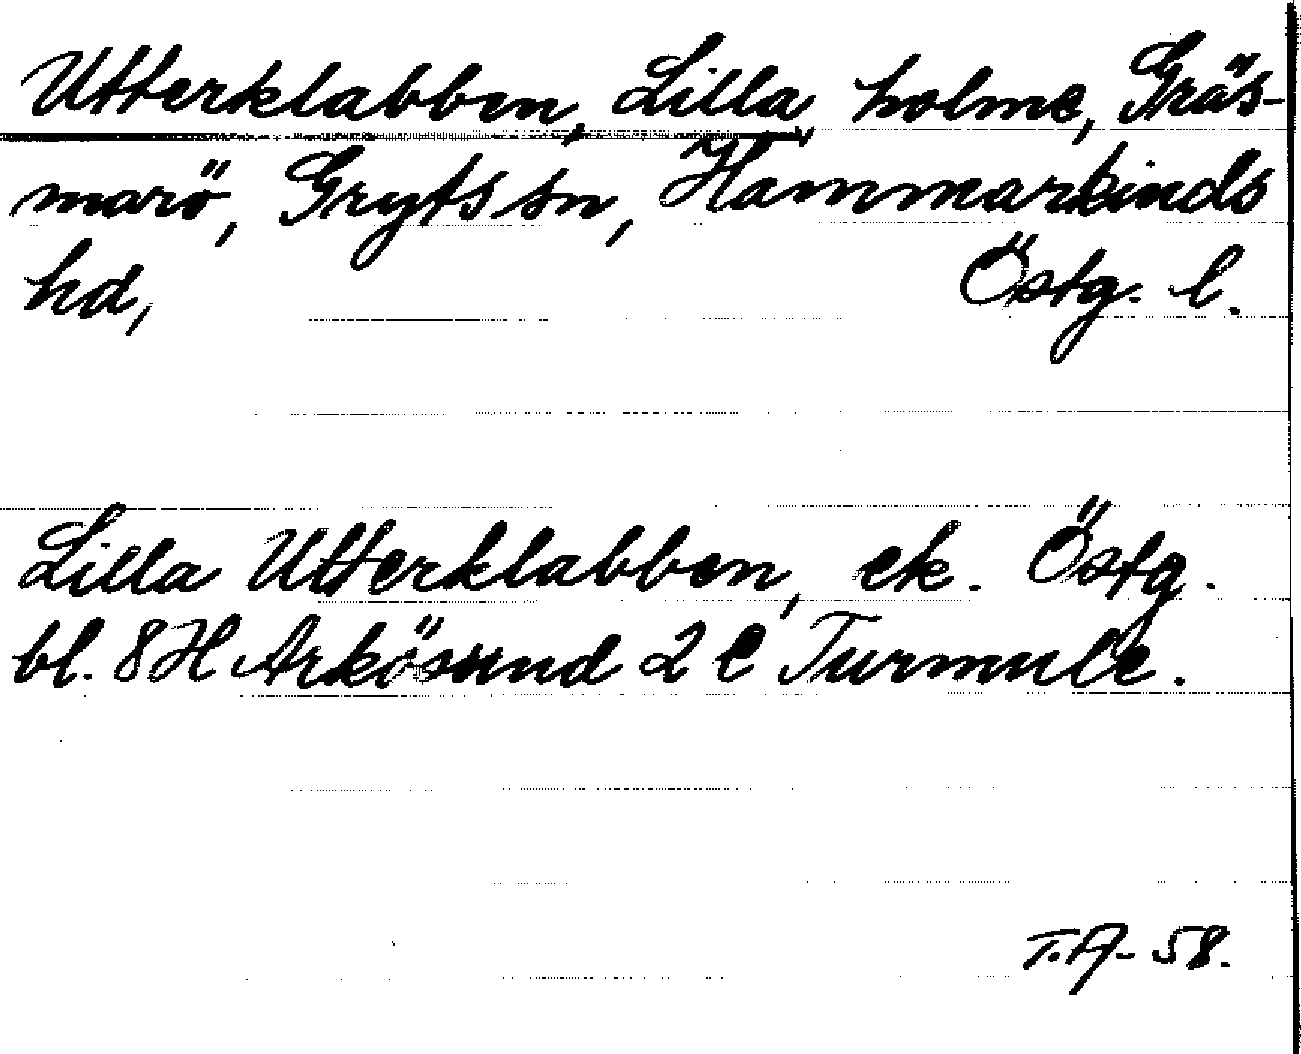 Utterklabben, Lilla, holme, Gräs-
marö, Gryts sn, Hammarkinds
hd, Östg. l.
Lilla Utterklabben, ek. Östg.
bl. 8 H Arkösund 2 C Turmule.
T.A- 58.